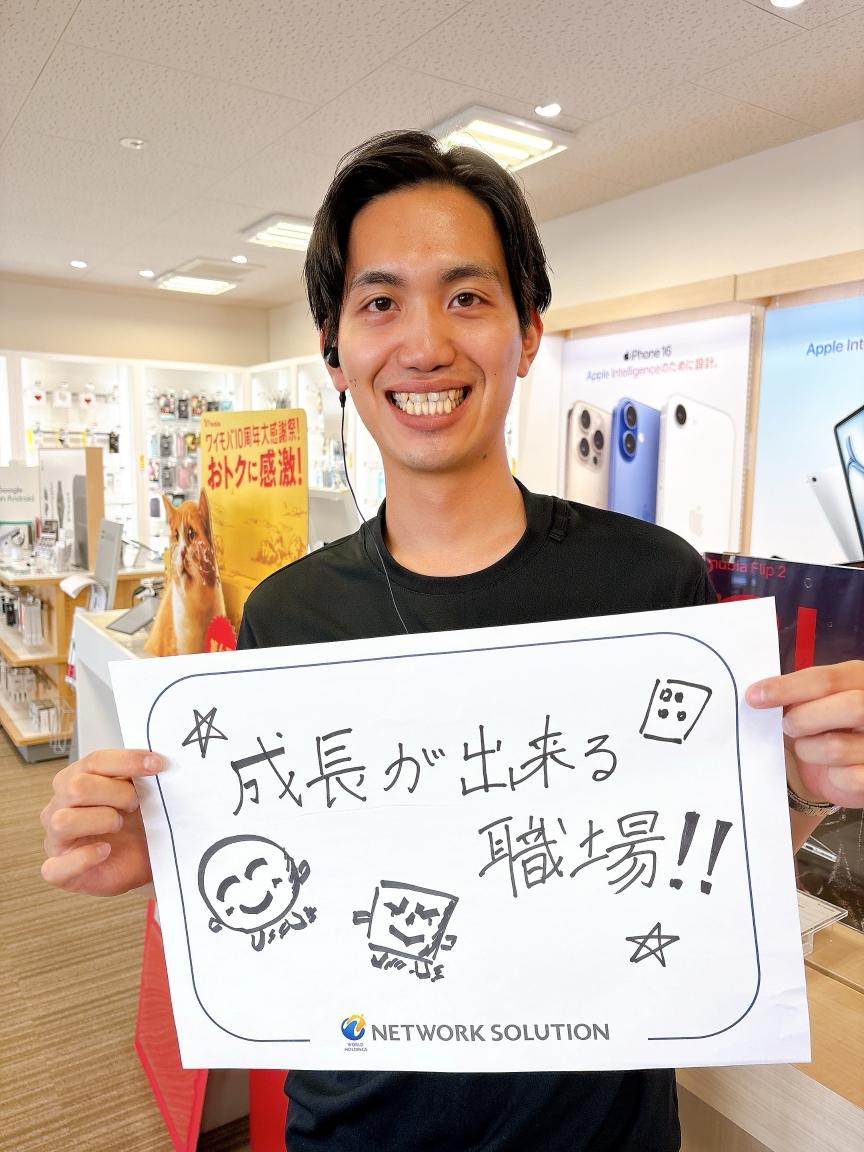 iPhone 16
Apple Intelligenceのために設計。
Apple Int
ワイモバ10周年大感謝祭!
おトクに感激!
Google
Android
nubia Flip 2
成長が出来る
職場!!
WORLD
HOLDINGS
NETWORK SOLUTION